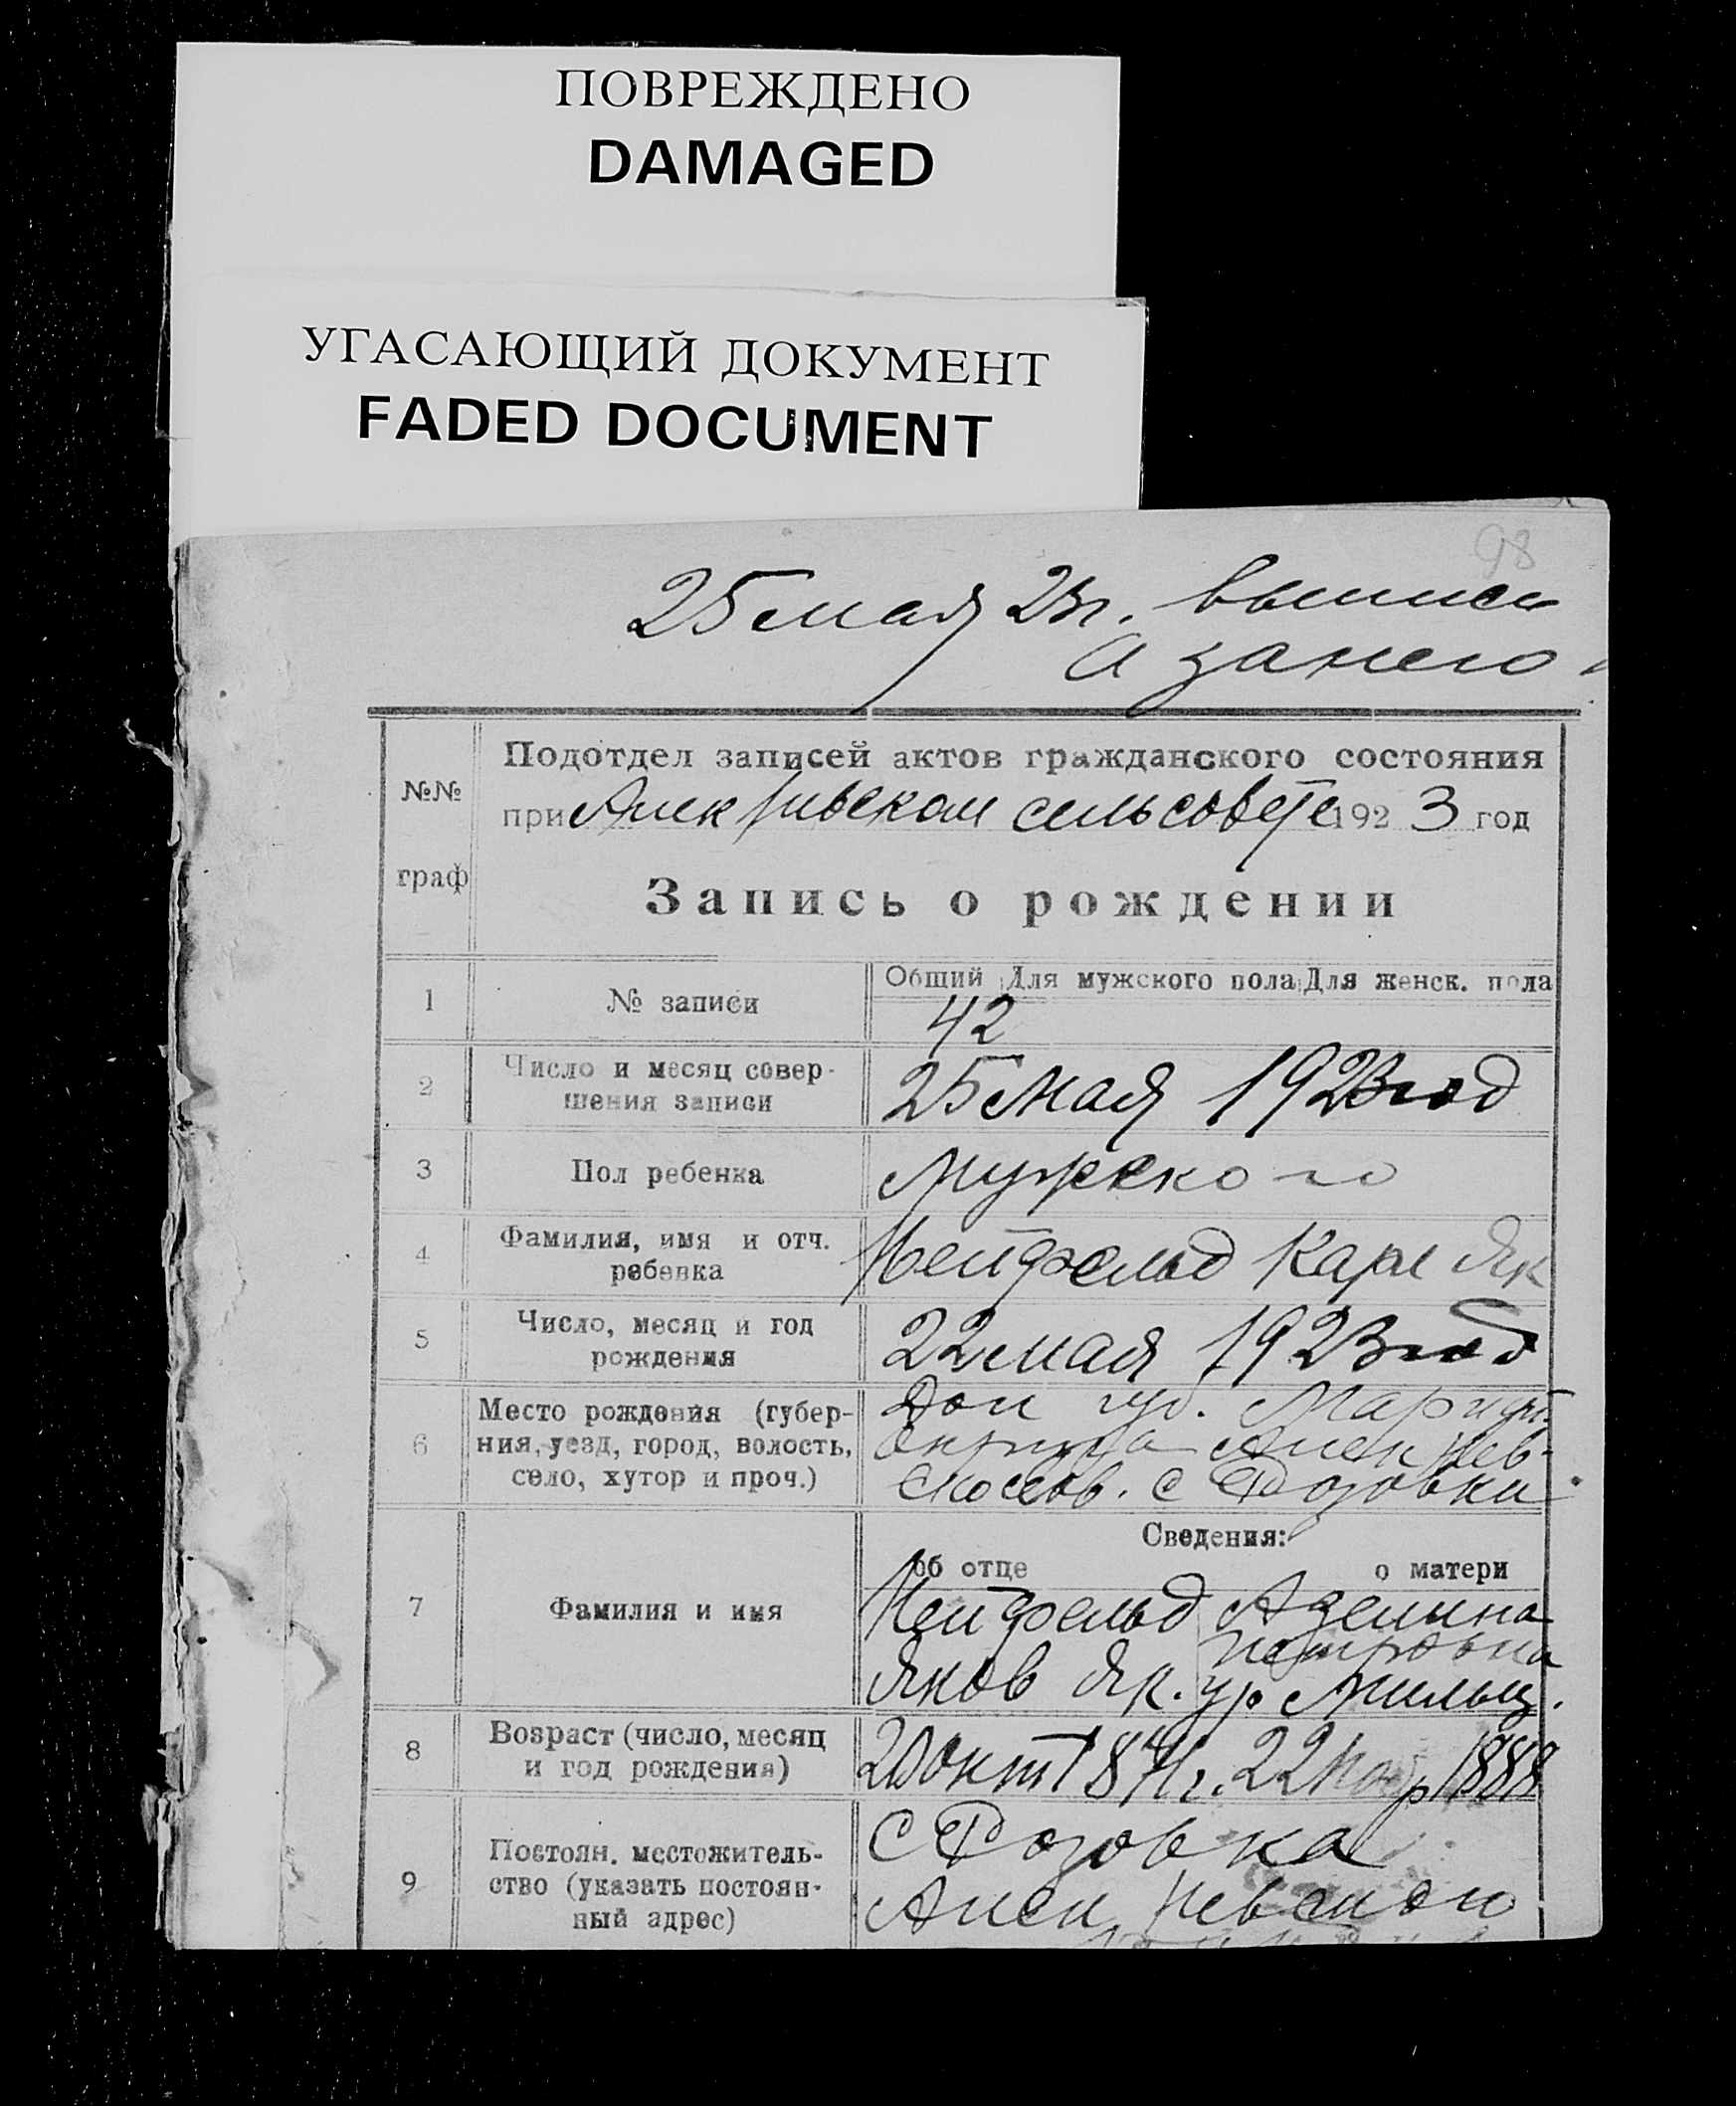 ПОВРЕЖДЕНО
DAMAGED
УГАСАЮЩИЙ ДОКУМЕНТ
FADED DOCUMENT
98
25 мая 23 г. выписи
№№
граф
Подотдел записей актов гражданского состояния
при сельсовете 1923 год
Запись о рождении
Общий Для мужского пола Для женск. пола
1 № записи 42
2 Число и месяц совер-
шения записи
25 мая 1923 год
3 Пол ребенка Мужского
4 Фамилия, имя и отч.
ребенка
Нейфельд Карл Як
5 Число, месяц и год
рождения
22 мая 1923 год
6 Место рождения (губер-
ния, уезд, город, волость,
село, хутор и проч.)
Дон губ. Мариуп.
округа Алек Нев-
с Розовки
Сведения:
об отце о матери
7 Фамилия и имя
Нейфельд Аделина
Петровна
Яков Як. ур
8 Возраст (число, месяц
и год рождения)
окт 22 1888
9 Постоян. местожитель-
ство (указать постоян-
ный адрес)
С Розовка
Алек Невского